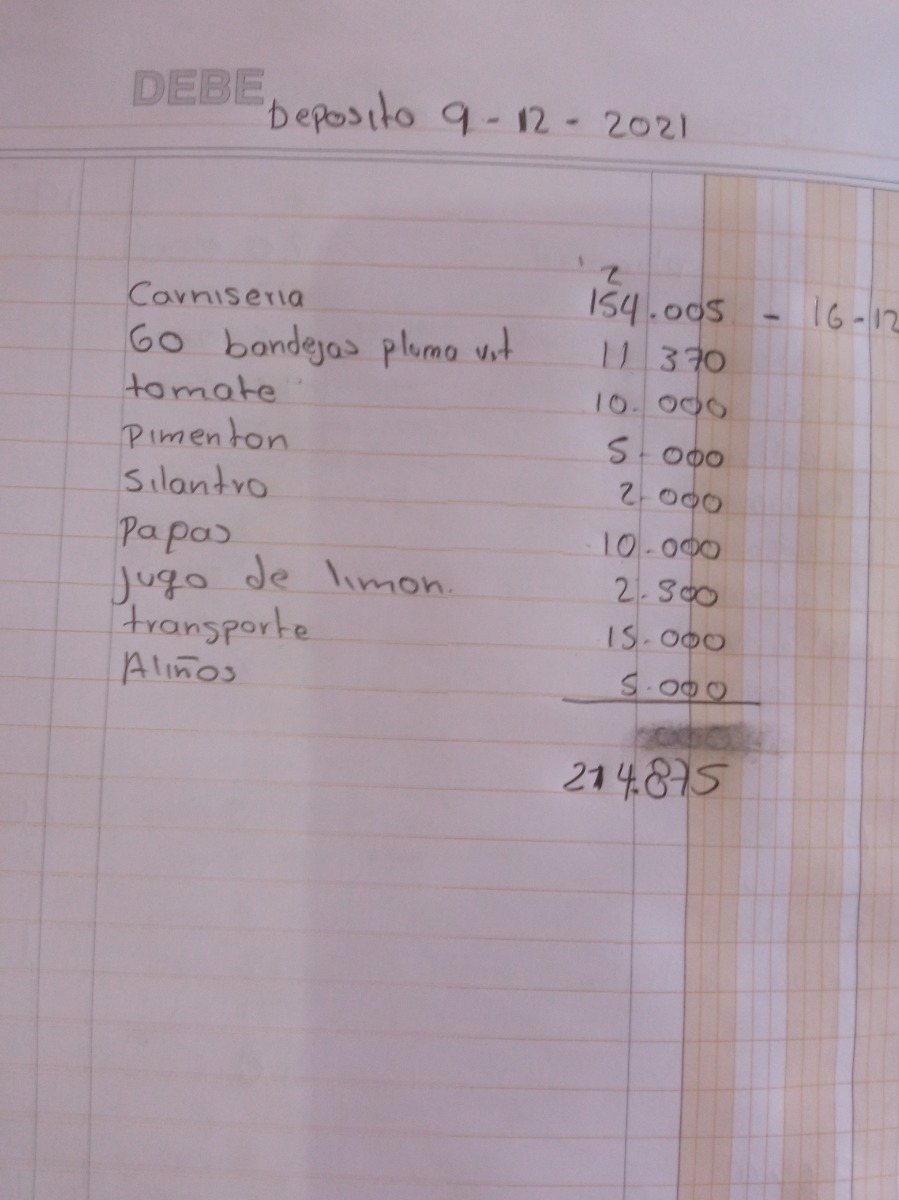 DEBE
Deposito 9-12-2021
' 2
Carniseria 154.005 - 16-12
60 bandejas pluma vit 11 370
tomate 10.000
Pimenton 5 000
Silantro 2 000
Papas 10.000
jugo de limon. 2.300
transporte 15.000
Aliños 5.000
214.875